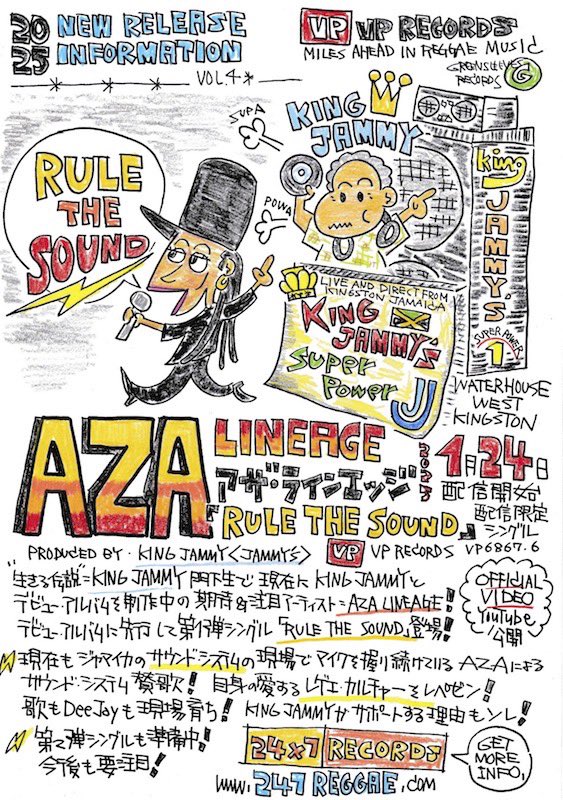 2025 NEW RELEASE INFORMATION
VOL.4
VP VP RECORDS
MILES AHEAD IN REGGAE MUSIC
GREENSLEEVES RECORDS G
SUPA
POWA
KING JAMMY
RULE
THE
SOUND
King
JAMMY'S
SUPER POWER
1
LIVE AND DIRECT FROM
KINGSTON JAMAICA
KING
JAMMY'S
SUPER
POWER J
WATERHOUSE
WEST
KINGSTON
AZA LINEAGE
アザ・ラインエッジ
「RULE THE SOUND」
2025 1月24日
配信開始
配信限定
シングル
VP6867.6
PRODUCED BY・KING JAMMY<JAMMYS> VP VP RECORDS
"生きる伝説"=KING JAMMY門下生で現在にKING JAMMYと
デビューアルバムを制作中の期待&注目アーティスト=AZA LINEAGE!
デビューアルバムに先行して第1弾シングル「RULE THE SOUND」登場!
OFFICIAL
VIDEO
YouTube
公開
現在もジャマイカのサウンドシステムの現場でマイクを握り続けているAZAによる
サウンド・システム賛歌! 自身の愛するレゲエ・カルチャーをレペゼン!
歌もDeeJayも現場育ち! KING JAMMYがサポートする理由もソレ!
第2弾シングルも準備中!
今後も要注目!
24x7 RECORDS
GET
MORE
INFO.
www.247REGGAE.com